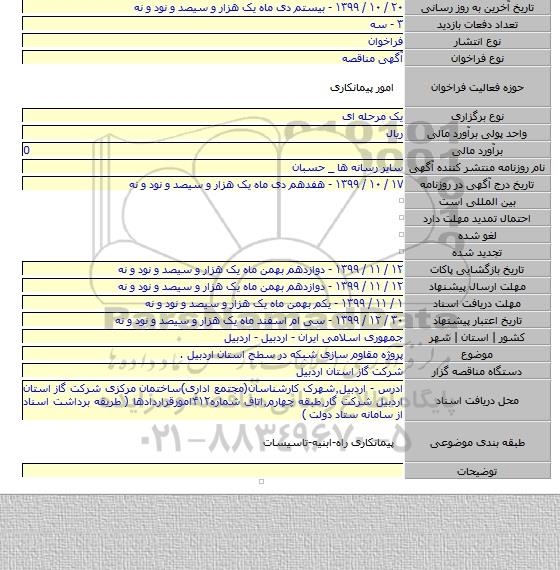 تاریخ آخرین به روز رسانی ۲۰ / ۱۰ / ۱۳۹۹ - بیستم دی ماه یک هزار و سیصد و نود و نه
تعداد دفعات بازدید ۳ - سه
نوع انتشار فراخوان
نوع فراخوان آگهی مناقصه
حوزه فعالیت فراخوان امور پیمانکاری
نوع برگزاری یک مرحله ای
واحد پولی برآورد مالی ریال
برآورد مالی 0
نام روزنامه منتشر کننده آگهی سایر رسانه ها _ حسبان
تاریخ درج آگهی در روزنامه ۱۷ / ۱۰ / ۱۳۹۹ - هفدهم دی ماه یک هزار و سیصد و نود و نه
بین المللی است
احتمال تمدید مهلت دارد
لغو شده
تجدید شده
تاریخ بازگشایی پاکات ۱۲ / ۱۱ / ۱۳۹۹ - دوازدهم بهمن ماه یک هزار و سیصد و نود و نه
مهلت ارسال پیشنهاد ۱۲ / ۱۱ / ۱۳۹۹ - دوازدهم بهمن ماه یک هزار و سیصد و نود و نه
مهلت دریافت اسناد ۱ / ۱۱ / ۱۳۹۹ - یکم بهمن ماه یک هزار و سیصد و نود و نه
تاریخ اعتبار پیشنهاد ۳۰ / ۱۲ / ۱۳۹۹ - سی ام اسفند ماه یک هزار و سیصد و نود و نه
کشور | استان | شهر جمهوری اسلامی ایران - اردبیل - اردبیل
موضوع پروژه مقاوم سازی شبکه در سطح استان اردبیل .
دستگاه مناقصه گزار شرکت گاز استان اردبیل
محل دریافت اسناد آدرس - اردبیل,شهرک کارشناسان(مجتمع اداری)ساختمان مرکزی شرکت گاز استان
اردبیل شرکت گاز,طبقه چهارم,اتاق شماره۴۱۲امورقراردادها ( طریقه برداشت اسناد
از سامانه ستاد دولت )
طبقه بندی موضوعی پیمانکاری راه-ابنیه-تاسیسات
توضیحات
ParsNamadData
۰۲۱-۸۸۳۴۹۶۷۰-۵